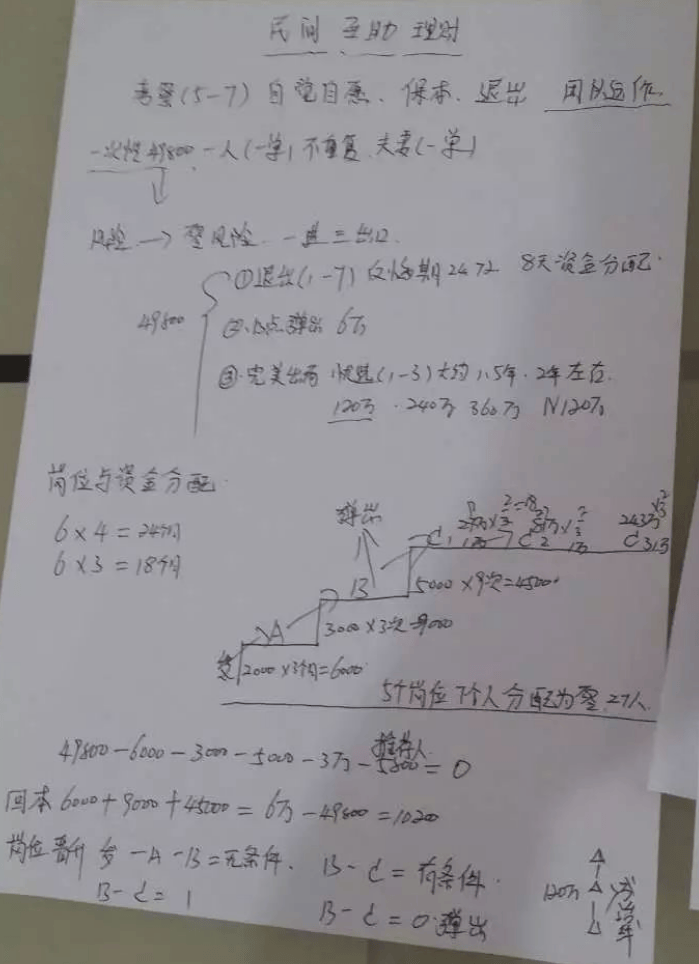 民间 互助 理财
考察(5-7) 自觉自愿、保本、退出 团队运作
一次性49800 一人(一单) 不重复、夫妻(一单)
风险 → 零风险、一进三出口.
49800
①退出(1-7) 24 72 8天资金分配.
②B点弹出 6万
③完美出局 (1-3)大约1.5年.2年左右.
120万 . 240万 360万 N120万
岗位与资金分配.
6×4=24个月
6×3=18个月
弹出
C1 C2 C3
B 5000×9次=45000
A 3000×3次=9000
2000×3个=6000
5个岗位 7个人分配为零. 27人.
推荐人
49800-6000-3000-5000-3万-5800=0
回本6000+9000+45000=6万-49800=10200
岗位晋升 -A-B=无条件. B-C=有条件.
B-C=1 B-C=0弹出
120万